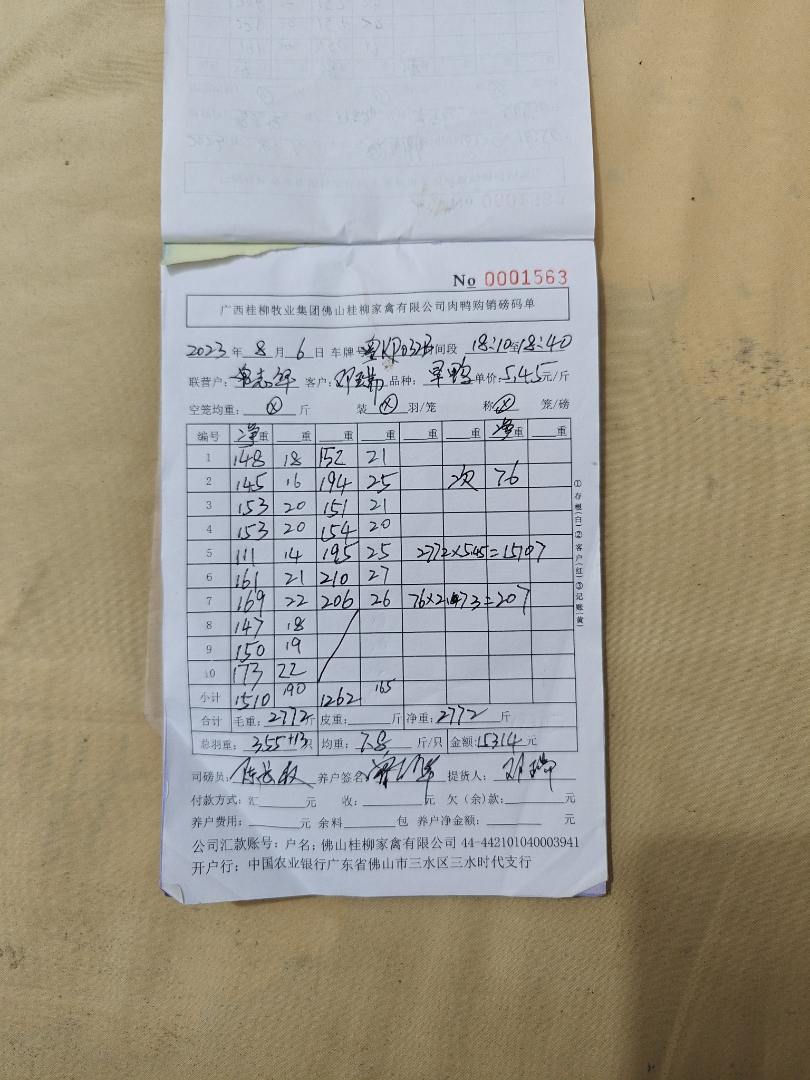 No 0001563
广西桂柳牧业集团佛山桂柳家禽有限公司肉鸭购销磅码单
2023 年 8 月 6 日 车牌号 时间段 18:10至18:40
联营户: 客户: 邓瑞 品种: 单价: 5.45元/斤
空笼均重: ⊗ 斤 装 ⊗ 羽/笼 称 ⊗ 笼/磅
编号 净重 重 重 重 重 重 净重 重
1 148 18 152 21
2 145 16 194 25 次 76
3 153 20 151 21
4 153 20 154 20
5 111 14 195 25 2772×5.45=15107
6 161 21 210 27
7 169 22 206 26 =207
8 147 18
9 150 19
10 173 22
小计 1510 190 1262 165
合计 毛重: 2772斤 皮重: 斤 净重: 2772 斤
总羽重: 355+13只 均重: 7.8 斤/只 金额: 15314元
司磅员: 养户签名: 提货人: 邓瑞
付款方式: 汇 元 收: 元 欠(余)款: 元
养户费用: 元 余料 包 养户净金额: 元
公司汇款账号: 户名: 佛山桂柳家禽有限公司 44-442101040003941
开户行: 中国农业银行广东省佛山市三水区三水时代支行
①存根(白)②客户(红)③记账(黄)